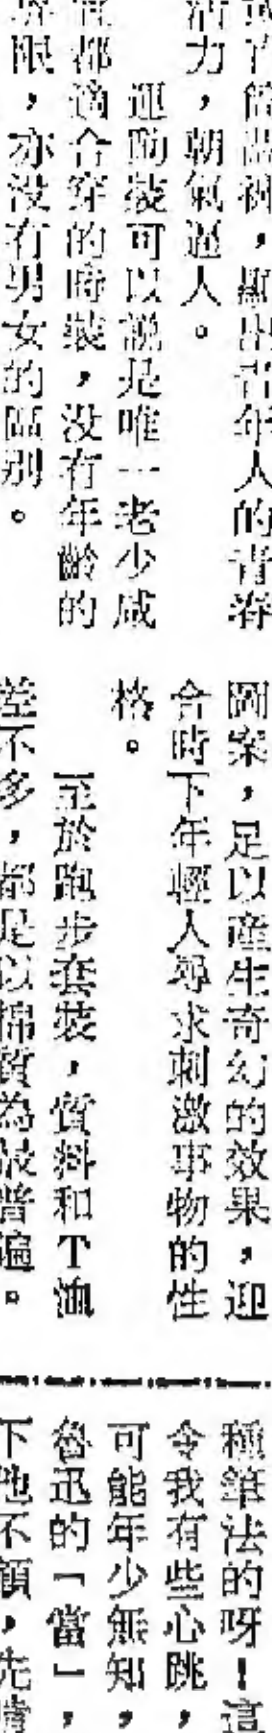 顯出青年人的青春
活力，朝氣逼人。
運動裝可以說是唯一老少咸
宜都適合穿的時裝，没有年齡的
界限，亦没有男女的區別。
圖案，足以產生奇幻的效果，迎
合時下年輕人尋求刺激事物的性
格。
至於跑步套裝，質料和T恤
差不多，都是以棉質為最普遍。
種筆法的呀！這
令我有些心跳，
可能年少無知，
魯迅的「當」，
下他不顧，先